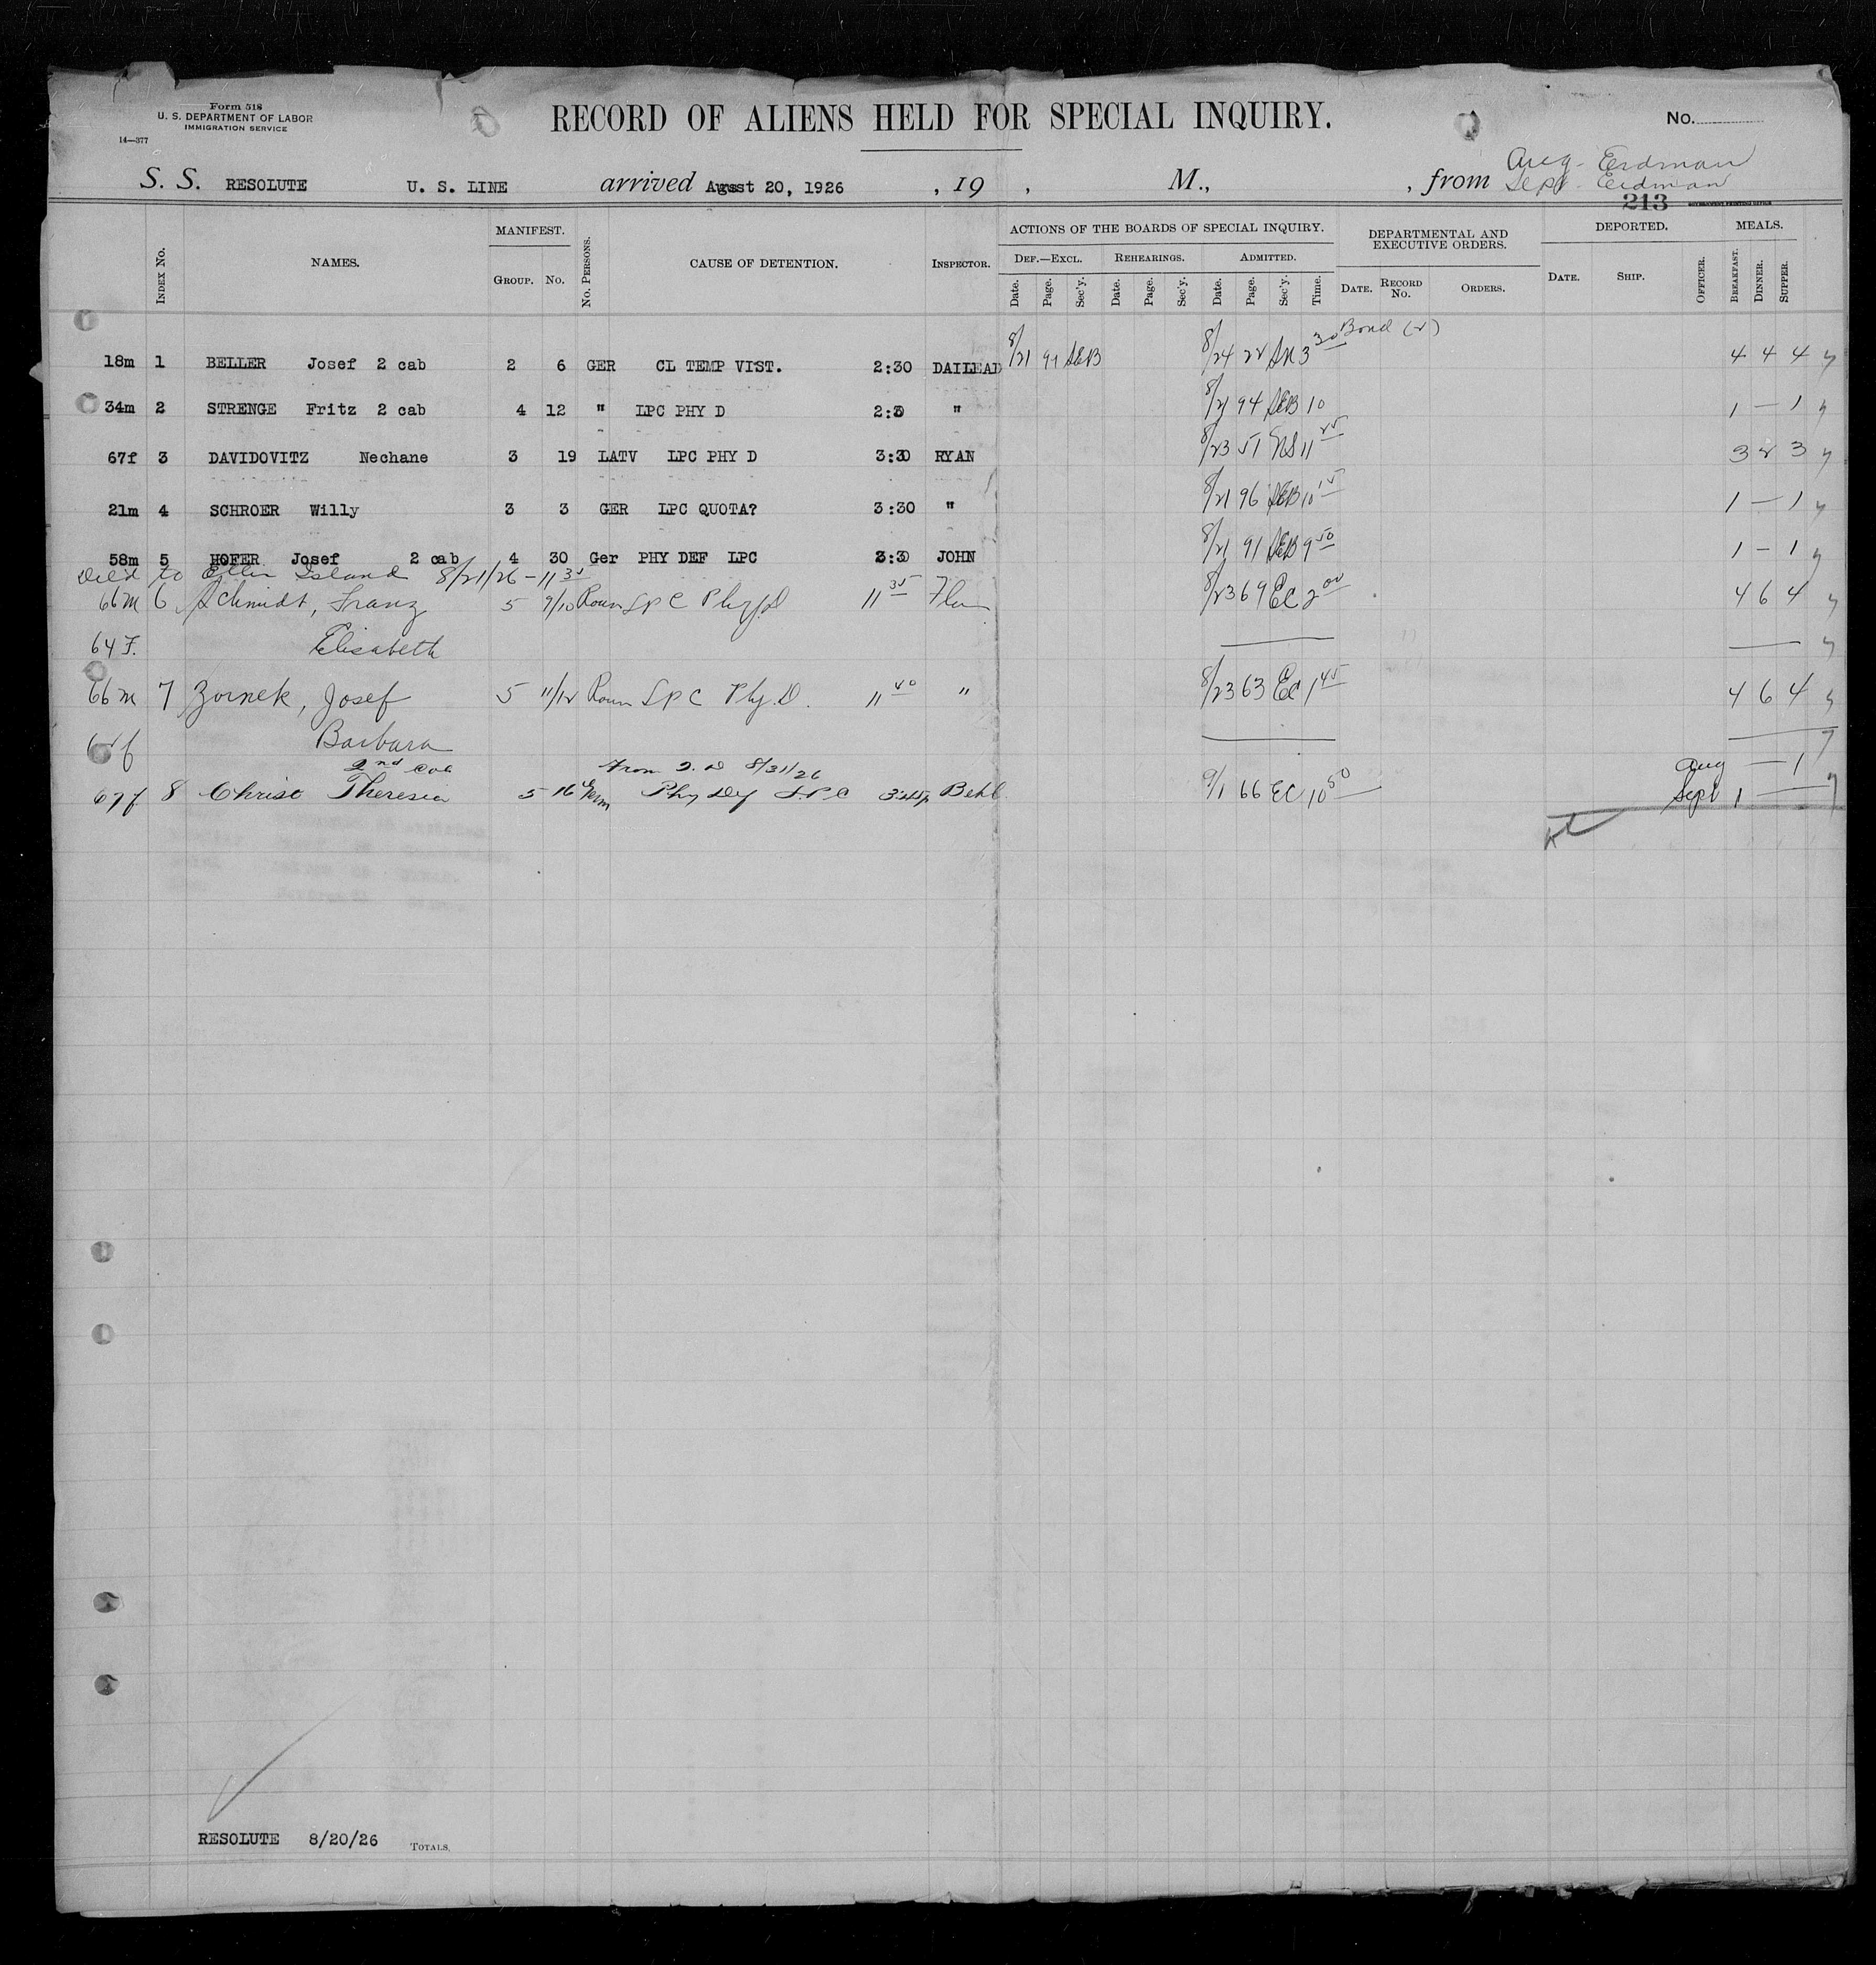 Form 518
U. S. DEPARTMENT OF LABOR
IMMIGRATION SERVICE
14—377
RECORD OF ALIENS HELD FOR SPECIAL INQUIRY.
No.
S. S. RESOLUTE U. S. LINE arrived August 20, 1926 , 19 , M., , from Aug - Erdman
Sept - Erdman
213
GOVERNMENT PRINTING OFFICE
INDEX NO. NAMES. MANIFEST. GROUP. NO. NO. PERSONS. CAUSE OF DETENTION. INSPECTOR. ACTIONS OF THE BOARDS OF SPECIAL INQUIRY. DEPARTMENTAL AND EXECUTIVE ORDERS. DEPORTED. MEALS.
DEF.—EXCL. REHEARINGS. ADMITTED.
Date. Page. Sec'y. Date. Page. Sec'y. Date. Page. Sec'y. Time. DATE. RECORD NO. ORDERS. DATE. SHIP. OFFICER. BREAKFAST. DINNER. SUPPER.
18m 1 BELLER Josef 2 cab 2 6 GER CL TEMP VIST. 2:30 DAILEAD 8/21 91 SEB 8/24 22 SN 3 30 Bond (2) 4 4 4 y
34m 2 STRENGE Fritz 2 cab 4 12 " LPC PHY D 2:30 " 8/21 94 SEB 10 1 — 1 y
67f 3 DAVIDOVITZ Nechane 3 19 LATV LPC PHY D 3:30 RYAN 8/23 51 NS 11 25 3 2 3 y
21m 4 SCHROER Willy 3 3 GER LPC QUOTA? 3:30 " 8/21 96 SEB 10 15 1 — 1 y
58m 5 HOFER Josef 2 cab 4 30 Ger PHY DEF LPC 3:30 JOHN 8/21 91 SEB 9 50 1 — 1 y
Del'd to Ellis Island 8/21/26 - 11 35
66m 6 Schmidt, Franz 5 9/10 Roum LPC Phy D 11 35 8/23 69 EC 2 00 4 6 4 y
64 F. Elisabeth — — y
66m 7 Zornek, Josef 5 11/12 Roum LPC Phy. D. 11 40 " 8/23 63 EC 1 45 4 6 4 y
Barbara — — y
2nd Cab From 8/31/26 Aug — 1
67f 8 Christ Theresia 5 16 Germ Phy Def LPC 3:45p 9/1 66 EC 10 50 Sept 1 — y
RESOLUTE 8/20/26 TOTALS.